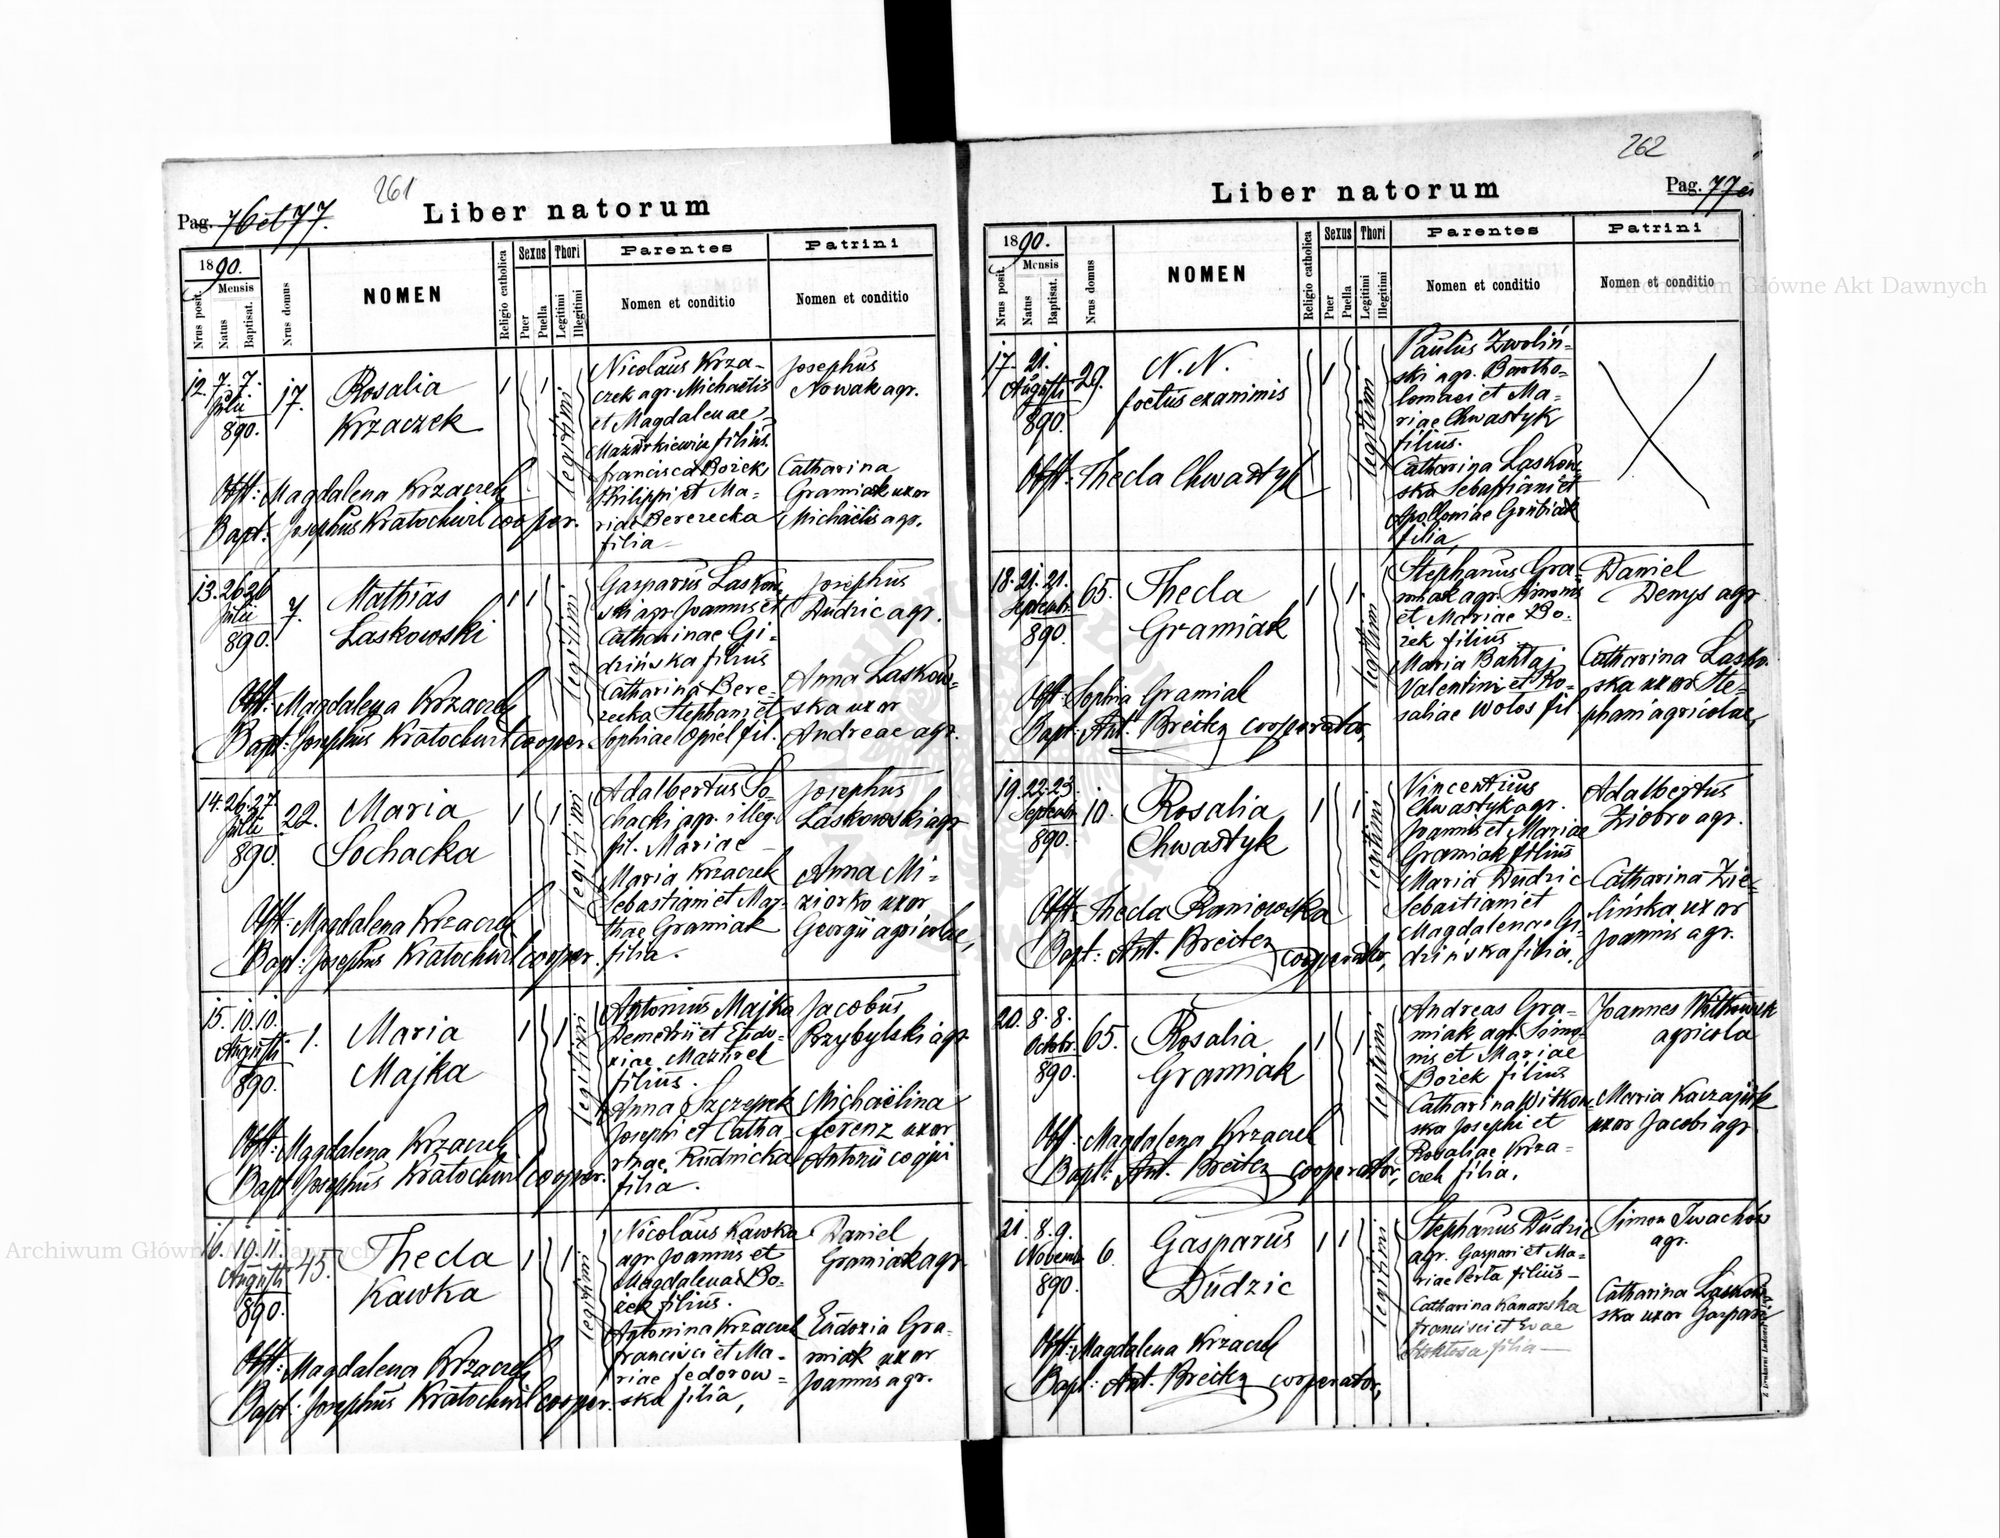 261
Pag. 76 et 77.
Liber natorum
1890.
Mensis
Nrus posit.
Natus
Baptisat.
Nrus domus
NOMEN
Religio catholica
Sexus
Puer
Puella
Thori
Legitimi
Illegitimi
Parentes
Nomen et conditio
Patrini
Nomen et conditio
12. 7. 7.
Julii
890.
17.
Rosalia
Krzaczek
1 1
legitimi
Nicolaus Krza-
czek agr. Michaëlis
et Magdalenae
Mazurkiewicz filius.
Francisca Bożek,
Philippi et Ma-
riae Berezecka
filia
Josephus
Nowak agr.
Catharina
Gramiak uxor
Michaëlis agr.
Obst: Magdalena Krzaczek
Bapt: Josephus Kratochwil cooper.
13. 26 26
Julii
890.
7.
Mathias
Laskowski
1 1
legitimi
Gasparus Laskow-
ski agr. Joannis et
Catharinae Gi-
dzińska filius
Catharina Bere-
zecka Stephani et
Sophiae Opiel fil.
Josephus
Dudzic agr.
Anna Laskow-
ska uxor
Andreae agr.
Obst: Magdalena Krzaczek
Bapt: Josephus Kratochwil cooper.
14. 26. 27.
Julii
890.
22.
Maria
Sochacka
1 1
legitimi
Adalbertus So-
chacki agr. illeg.
fil. Mariae
Maria Krzaczek
Sebastiani et Mar-
thae Gramiak
filia.
Josephus
Laskowski agr
Anna Mi-
ziorko uxor
Georgii agricolae,
Obst: Magdalena Krzaczek
Bapt: Josephus Kratochwil cooper.
15. 10. 10.
Augusti
890.
1.
Maria
Majka
1 1
legitimi
Antonius Majka
Demetrii et Eudo-
xiae Mazurek
filius.
Anna Szczepek
Josephi et Catha-
rinae Rudnicka
filia.
Jacobus
Przybylski agr.
Michaëlina
Ferenz uxor
Antonii coqui
Obst: Magdalena Krzaczek
Bapt: Josephus Kratochwil cooper.
16. 10. 11.
Augusti
890.
45.
Thecla
Kawka
1 1
legitimi
Nicolaus Kawka
agr. Joannis et
Magdalenae Bo-
żek filius.
Antonina Krzaczek
Francisci et Ma-
riae Fedorow-
ska filia,
Daniel
Gramiak agr.
Eudoxia Gra-
miak uxor
Joannis agr.
Obst: Magdalena Krzaczek
Bapt: Josephus Kratochwil cooper.
262
Liber natorum
Pag. 77 et
1890.
Mensis
Nrus posit.
Natus
Baptisat.
Nrus domus
NOMEN
Religio catholica
Sexus
Puer
Puella
Thori
Legitimi
Illegitimi
Parentes
Nomen et conditio
Patrini
Nomen et conditio
17. 21.
Augusti
890.
29.
N. N.
foetus exanimis
1
legitimi
Paulus Zwoliń-
ski agr. Bartho-
lomaei et Ma-
riae Chwastyk
filius.
Catharina Laskow-
ska Sebastiani et
Apolloniae Grubiak
filia,
Obst: Thecla Chwastyk
18. 21. 21.
Septemb.
890.
65.
Thecla
Gramiak
1 1
legitimi
Stephanus Gra-
miak agr. Simonis
et Mariae Bo-
żek filius.
Maria Bahtaj
Valentini et Ro-
saliae Wołos fil
Daniel
Denys agr
Catharina Lasko-
ska uxor Ste-
phani agricolae,
Obst: Sophia Gramiak
Bapt: Ant. Breiter cooperator,
19. 22. 23.
Septembr
890.
10.
Rosalia
Chwastyk
1 1
legitimi
Vincentius
Chwastyk agr.
Joannis et Mariae
Gramiak filius
Maria Dudzic
Sebastiani et
Magdalenae Gi-
dzińska filia.
Adalbertus
Ziobro agr.
Catharina Zie-
lińska uxor
Joannis agr.
Obst: Thecla Raniowska
Bapt: Ant. Breiter cooperator,
20. 8. 8.
Octobr.
890.
65.
Rosalia
Gramiak
1 1
legitimi
Andreas Gra-
miak agr. Simo-
nis et Mariae
Bożek filius
Catharina Witkow-
ska Josephi et
Rosaliae Krza-
czek filia.
Joannes
agricola
Maria
uxor Jacobi agr.
Obst: Magdalena Krzaczek
Bapt: Ant. Breiter cooperator,
21. 8. 9.
Novemb
890.
6.
Gasparus
Dudzic
1 1
legitimi
Stephanus Dudzic
agr. Gaspari et Ma-
riae Perta filius
Catharina Kanarska
Francisci et Evae
Stoktosa filia
Simon Iwachów
agr.
Catharina Laskow-
ska uxor Gaspari
Obst: Magdalena Krzaczek
Bapt: Ant. Breiter cooperator,
Archiwum Główne Akt Dawnych
Archiwum Główne Akt Dawnych